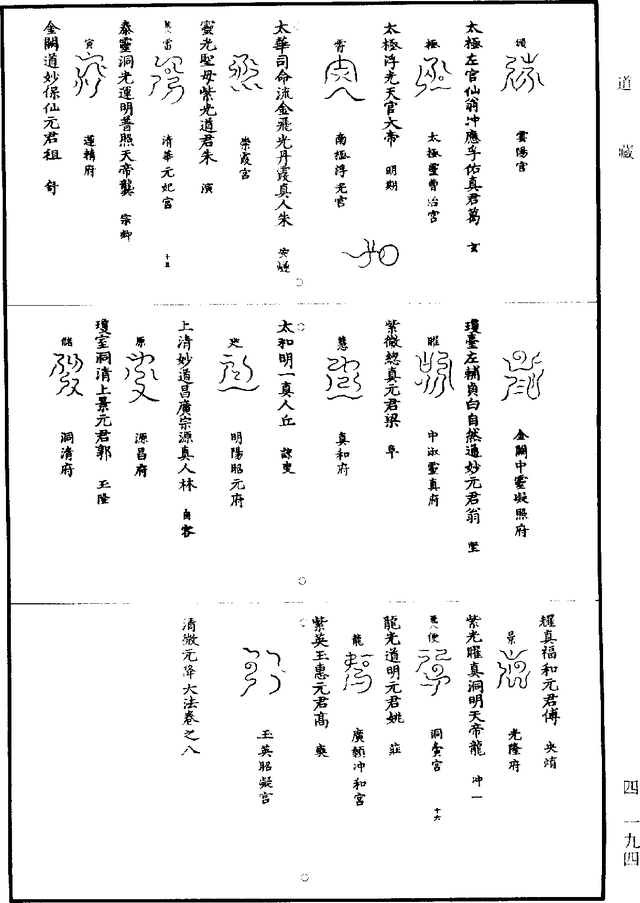 道藏
頌
雲陽宮
太極左官仙翁冲應孚佑真君葛 玄
極
太極靈曹治宮
太極浮光天官大帝 明期
霄
南極浮光宮
太華司命流金飛光丹霞真人朱 安
崇霞宮
靈光聖母紫光道君朱 演
雷
清華元妃宮
十五
泰靈洞光運明普照天帝龔 宗
寅
蓮精府
金闕道妙保仙元君祖 舒
金闕中靈凝照府
瓊臺左輔貞白自然通妙元君翁
中淑靈真府
紫微總真元君梁
慧
真和府
太和明一真人丘
明陽昭元府
上清妙道昌廣宗源真人林
原
源昌府
瓊室洞清上景元君郭 玉隆
儲
洞清府
耀真福和元君傅 央
景
光隆府
紫光曜真洞明天帝龍 冲一
便
洞賓宮
十六
龍光道明元君姚 莊
龍
廣額冲和宮
紫英玉惠元君高 奭
玉英昭凝宮
清微元降大法卷之八
四一九四